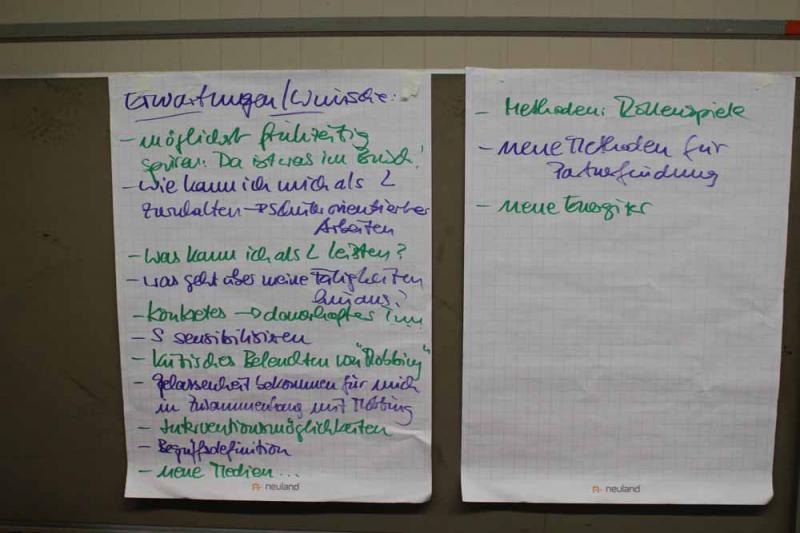 Erwartungen/Wünsche:
- möglichst frühzeitig
spüren: Da ist was im Busch!
- wie kann ich mich als L
zurückhalten → Schülerorientierter
Arbeiten
- was kann ich als L leisten?
- was geht über meine Tätigkeiten
hinaus?
- Konkretes → dauerhaftes
- S sensibilisieren
- kritisches Beleuchten von "Mobbing"
- Gelassenheit bekommen für mich
in Zusammenhang mit Mobbing
- Interventionsmöglichkeiten
- Begriffsdefinition
- neue Medien...
neuland
- Methoden: Rollenspiele
- neue Methoden für
Partnerfindung
- neue Energizer
neuland